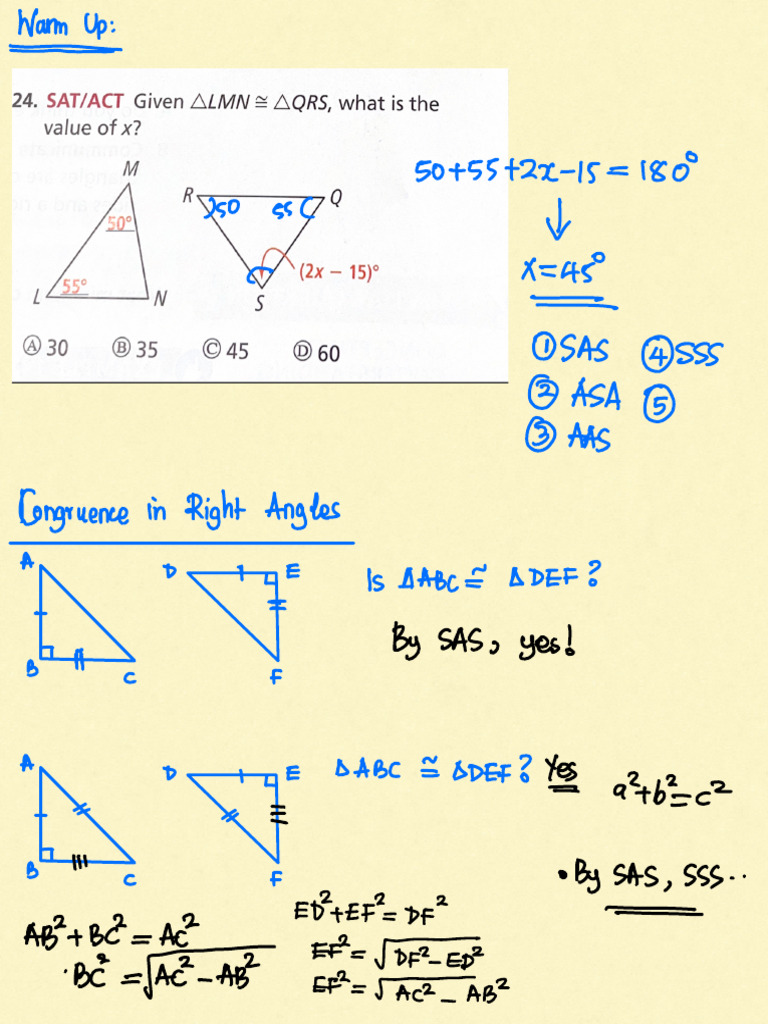 Warm Up:
24. SAT/ACT Given △LMN ≅ △QRS, what is the
value of x?
M
R 50 55 Q
50°
55°
L N
(2x − 15)°
S
Ⓐ 30 Ⓑ 35 Ⓒ 45 Ⓓ 60
50+55+2x−15=180°
↓
x=45°
① SAS ④ SSS
② ASA ⑤
③ AAS
Congruence in Right Angles
A
D E
B C
F
Is △ABC ≅ △DEF?
By SAS, yes!
A
D E
B C
F
△ABC ≅ △DEF? Yes
a²+b²=c²
• By SAS, SSS..
AB²+BC²=AC²
·BC²=√AC²−AB²
ED²+EF²=DF²
EF²=√DF²−ED²
EF²=√AC²−AB²